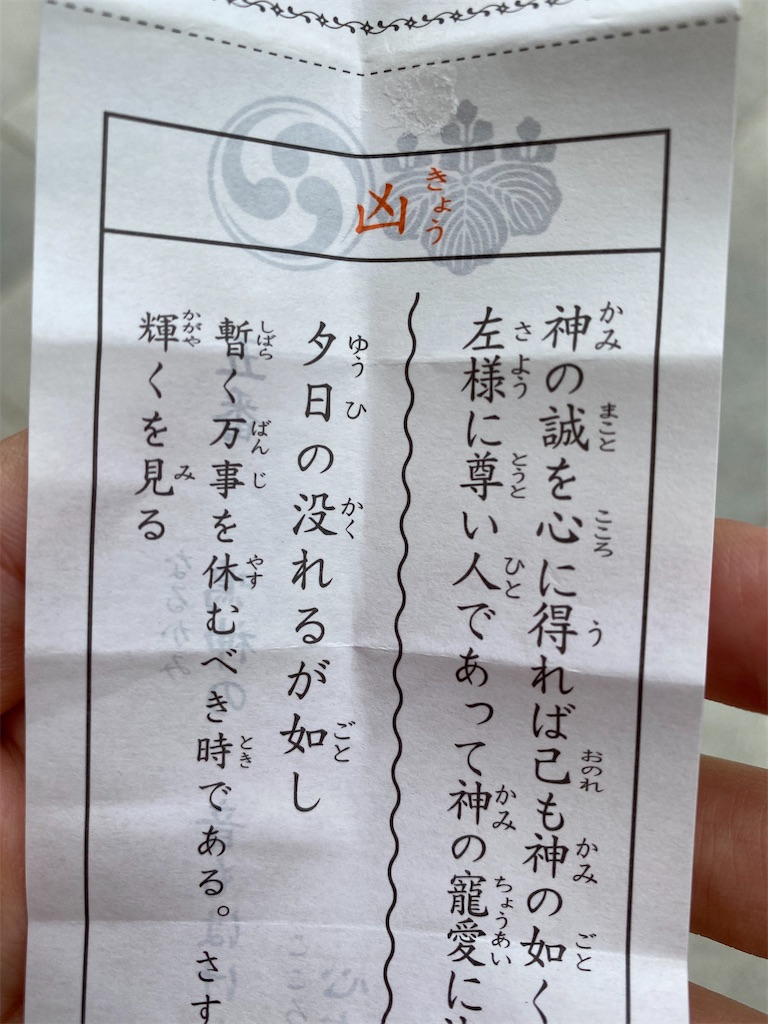 凶
きょう
神の誠を心に得れば己も神の如く
かみ まこと こころ う おのれ かみ ごと
左様に尊い人であって神の寵愛に
さよう とうと ひと かみ ちょうあい
夕日の没れるが如し
ゆうひ かく ごと
暫く万事を休むべき時である。さす
しばら ばんじ やす とき
輝くを見る
かがや み